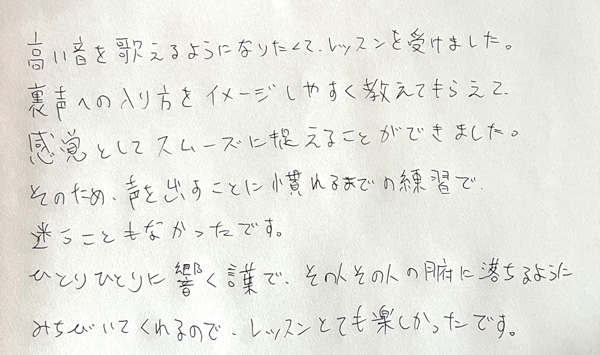 高い音を歌えるようになりたくて、レッスンを受けました。
裏声への入り方をイメージしやすく教えてもらえて、
感覚としてスムーズに捉えることができました。
そのため、声を出すことに慣れるまでの練習で、
迷うこともなかったです。
ひとりひとりに響く言葉で、その人その人の腑に落ちるように
みちびいてくれるので、レッスンとても楽しかったです。